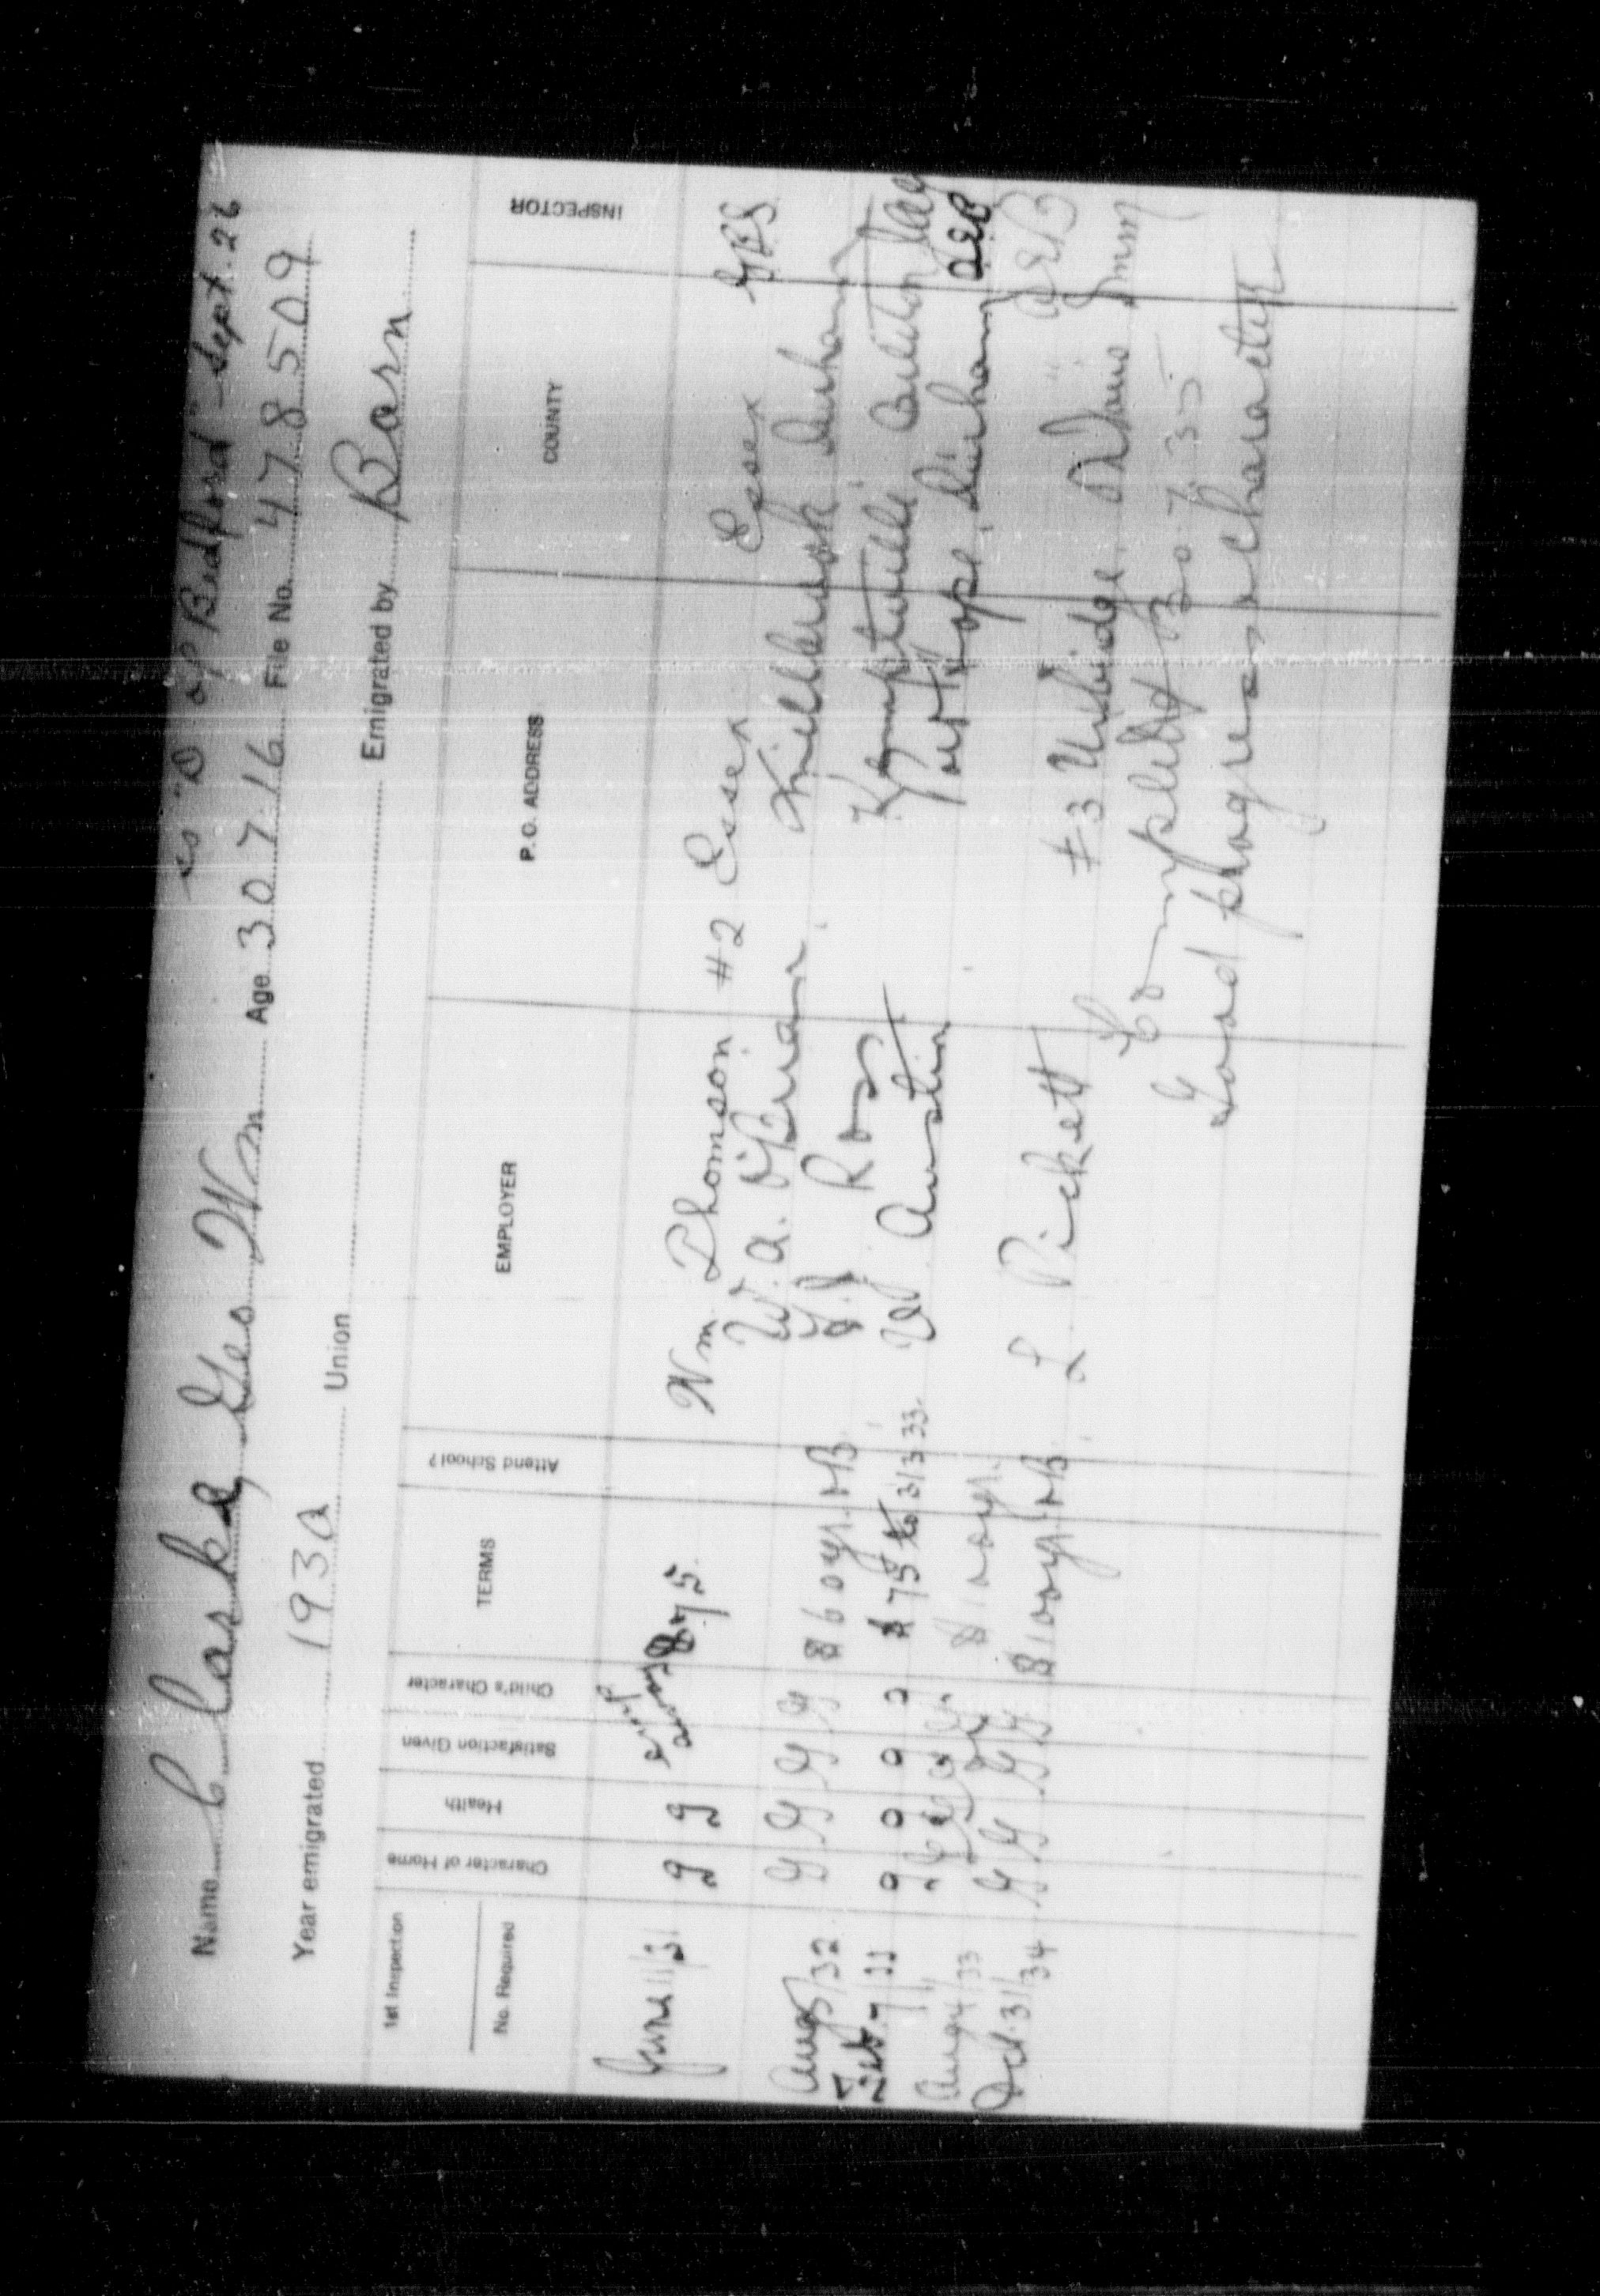 ss "D of Bedford" Sept. 26
Name Caske, Geo Wm Age 30 7 16 File No. 478509
Year emigrated 1930 Union Emigrated by Barn
1st Inspection
No. Required
Character of Home
Health
Satisfaction Given
Child's Character
TERMS
Attend School?
EMPLOYER
P.O. ADDRESS
COUNTY
INSPECTOR
June 11/31 g g $75 Wm Thomson #2 Essex Essex GBS
W. A. Millbrook Durham
Aug 5/32 G G G G $60 yr. + B Ross
Feb 7/33 g g g g $75 to 31 3 33. W. Austin Port Hope, Durham DEB
Aug 4/33 $100 yr. " DEB
Oct. 31/34 G G G G $100 yr. + B L. Pickett #3 Uxbridge
Completed 30-7-35
Good progress & character